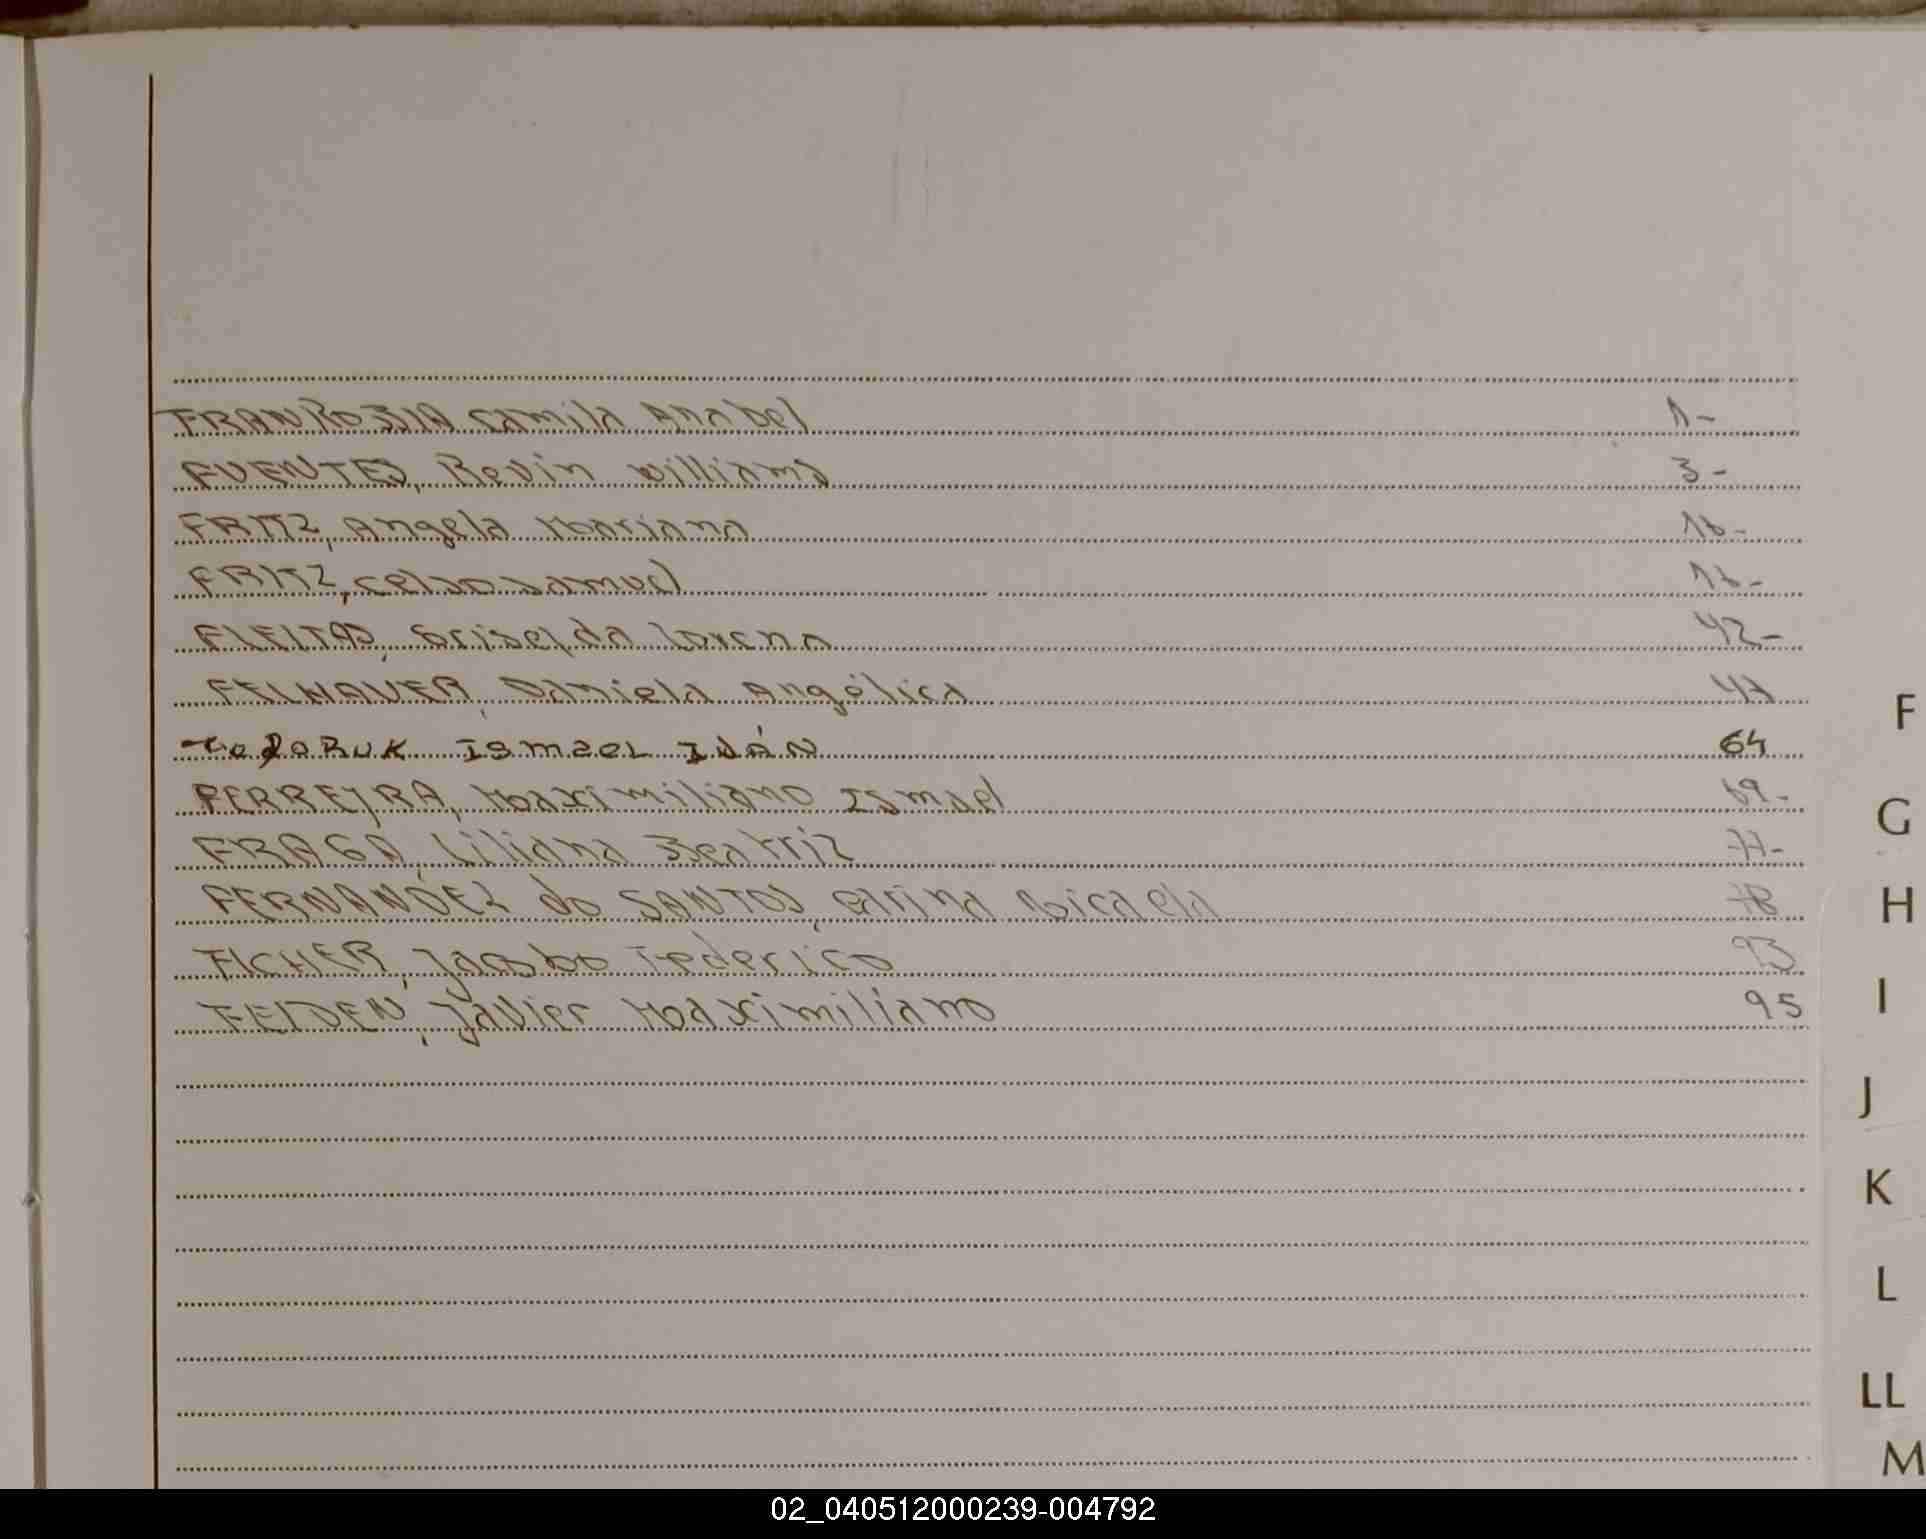 FRANKOSKIA Camila Anabel 1-
FUENTES, Kevin Williams 3-
FRITZ, Angela Mariana 16-
FRITZ, Celso Samuel 16-
FLEITAS, Griselda Lorena 42-
FELHAUER, Daniela Angélica 47
FedoRuk Ismael IVÁN 64
FERREYRA, Maximiliano Ismael 69-
F
FRAGA, Liliana Beatriz 77-
G
FERNANDEZ do SANTOS, Carina Micaela 78
H
FICHER, Jacobo Federico 93
FEIDEN, Javier Maximiliano 95
I
J
K
L
LL
M
02_040512000239-004792